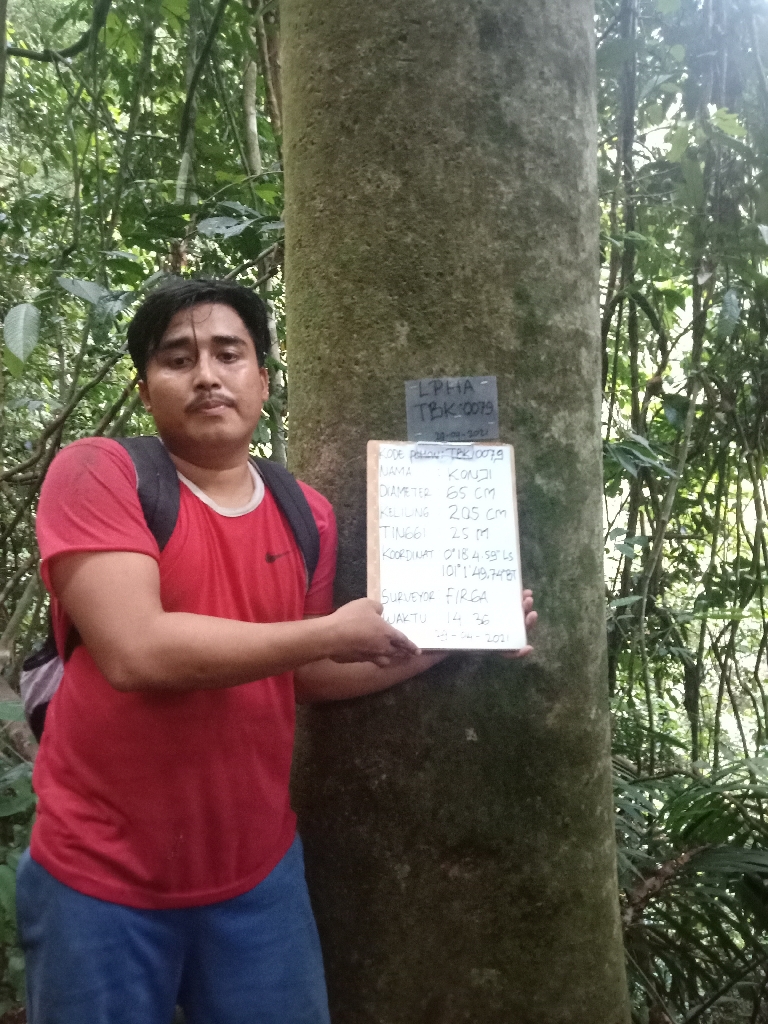 LPHA
TBK 0079
29-04-2021
KODE POHON : TBK/0079
NAMA : KONJI
DIAMETER 65 CM
KELILING 205 CM
TINGGI 25 M
KOORDINAT 0°18'4.59" LS
101°1'49.74" BT
SURVEYOR FIRGA
WAKTU 14.36
29-04-2021